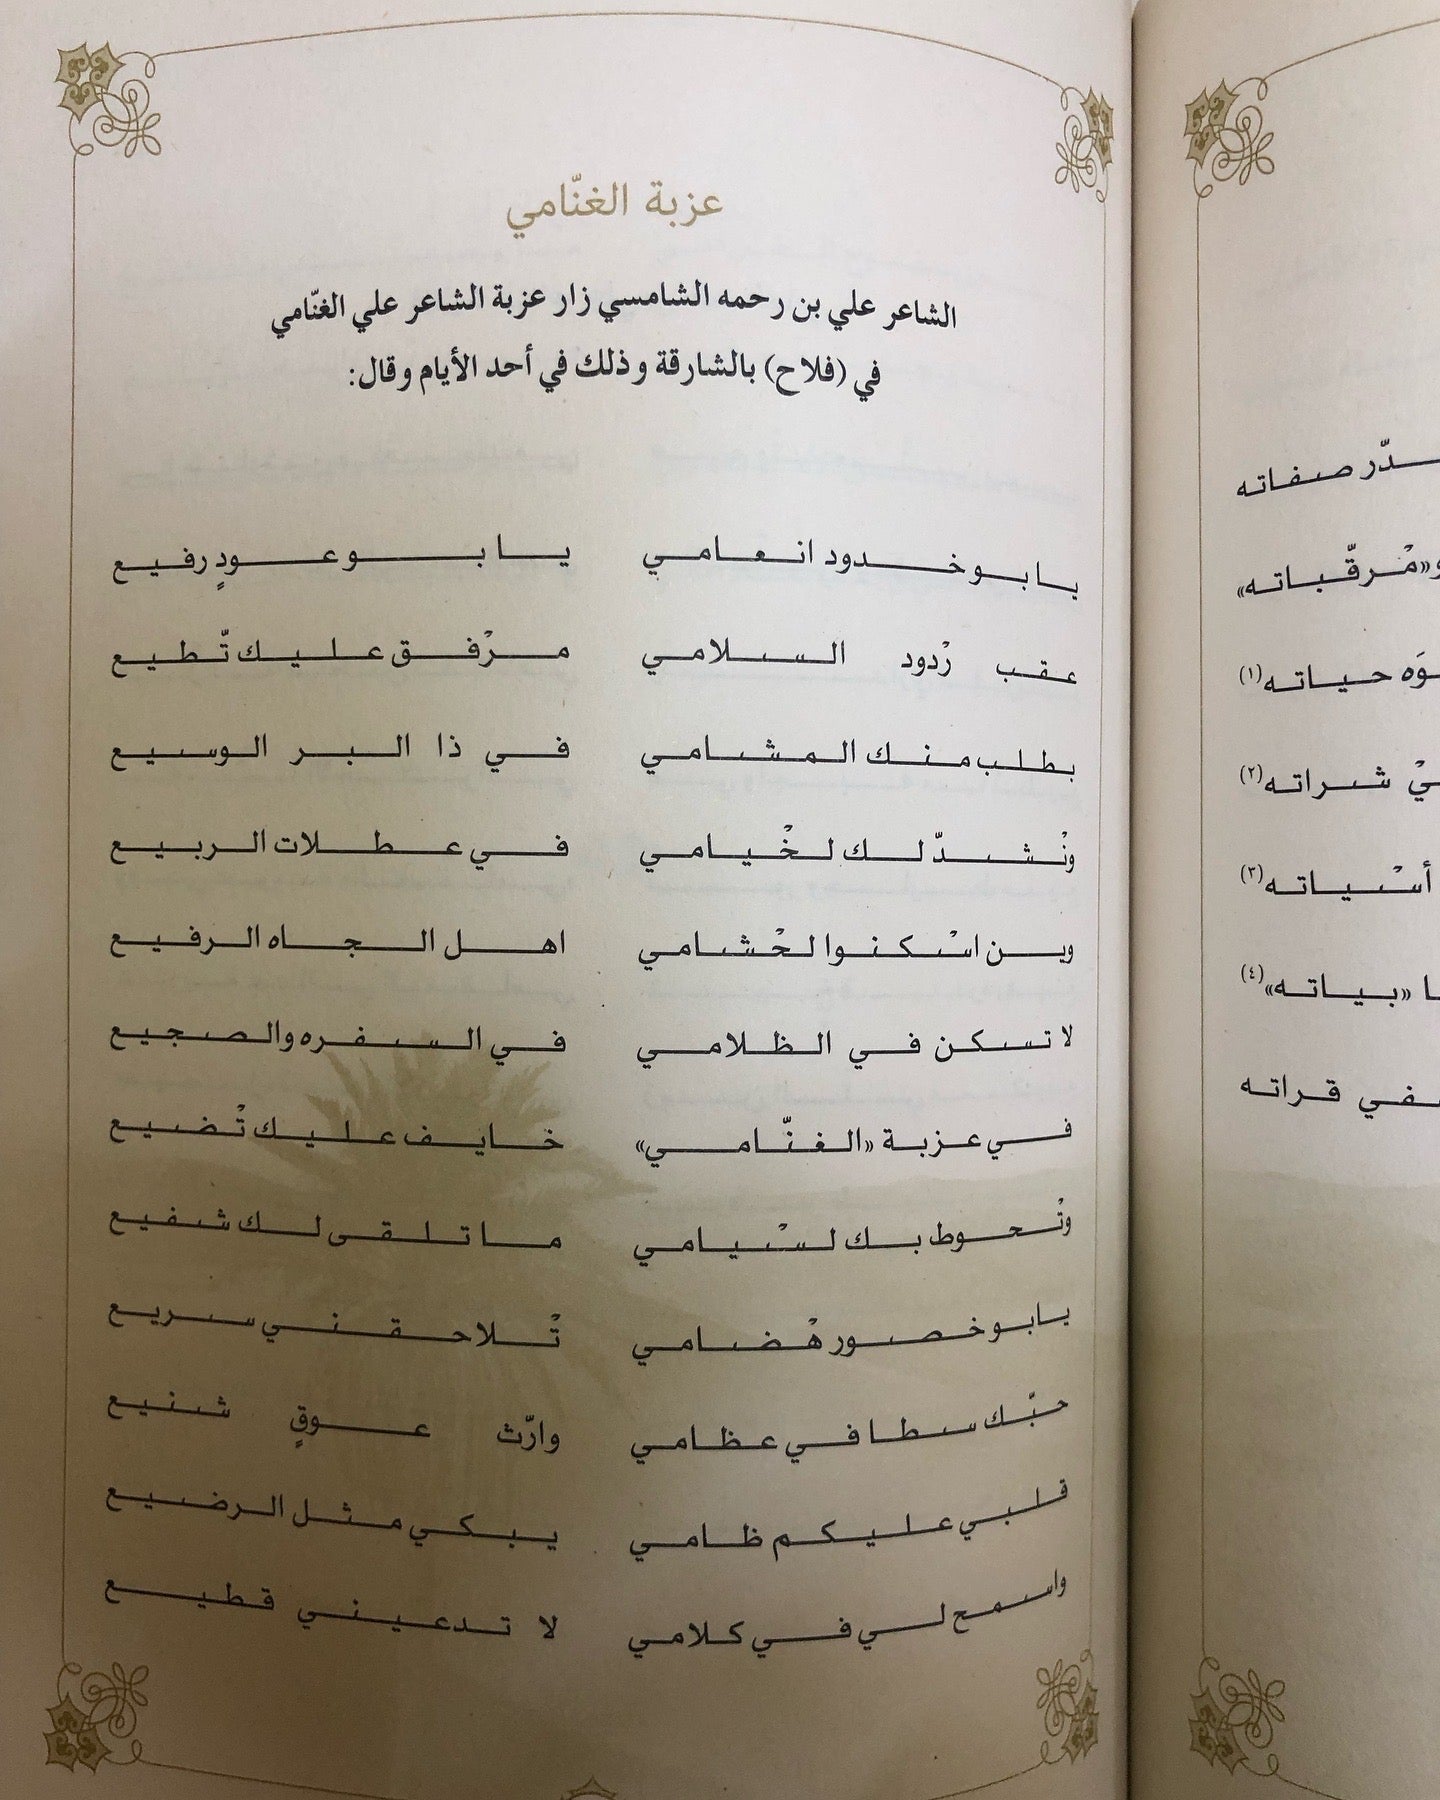 عزبة الغنّامي
الشاعر علي بن رحمه الشامسي زار عزبة الشاعر علي الغنّامي
في (فلاح) بالشارقة وذلك في أحد الأيام وقال:
يا بو خدود انعامي يا بو عودٍ رفيع
عقب رْدود السلامي مرْفق عليك تّطيع
بطلب منك المشامي في ذا البر الوسيع
ونْشدّ لك لخْيامي في عطلات الربيع
وين اسْكنوا لحْشامي اهل الجاه الرفيع
لا تسكن في الظلامي في السفره والصجيع
في عزبة «الغنّامي» خايف عليك تْضيع
وتْحوط بك لسْيامي ما تلقى لك شفيع
يا بو خصور هْضامي تْلاحقني سريع
حبّك سطا في عظامي وارّث عوقٍ شنيع
قلبي عليكم ظامي يبكي مثل الرضيع
واسمح لي في كلامي لا تدعيني قطيع
ـدّر صفاته
و«مْرقّباته»
ـوَه حياته(١)
ـيْ شراته(٢)
أسْياته(٣)
ـا «بياته»(٤)
ـفي قراته